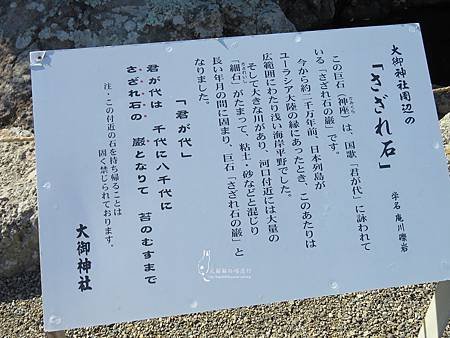 大御神社周辺の
「さざれ石」
学名 庵川礫岩
この巨石（神座）は、国歌「君が代」に詠われて
いる「さざれ石の巌」です。
今から約二千万年前、日本列島が
ユーラシア大陸の縁にあったとき、このあたりは
広範囲にわたり浅い海岸平野でした。
そして大きな川があり、河口付近には大量の
「細石」がたまって、粘土・砂などと混じり
長い年月の間に固まり、巨石「さざれ石の巌」と
なりました。
「君が代」
君が代は 千代に八千代に
さざれ石の 巌となりて 苔のむすまで
注・この付近の石を持ち帰ることは
固く禁じられております。
大御神社